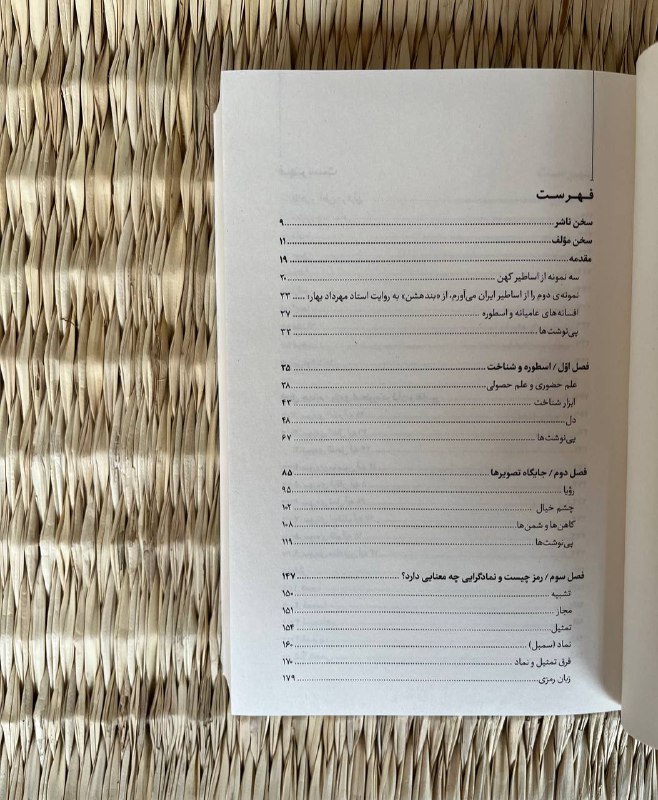 فهرست
سخن ناشر ........ ۹
سخن مؤلف ........ ۱۱
مقدمه ........ ۱۹
سه نمونه از اساطیر کهن ........ ۲۰
نمونه‌ی دوم را از اساطیر ایران می‌آورم، از «بندهشن» به روایت استاد مهرداد بهار: ..... ۲۳
افسانه‌های عامیانه و اسطوره ........ ۲۷
پی‌نوشت‌ها ........ ۳۲
فصل اوّل / اسطوره و شناخت ........ ۳۵
علم حضوری و علم حصولی ........ ۳۸
ابزار شناخت ........ ۴۳
دل ........ ۴۸
پی‌نوشت‌ها ........ ۶۷
فصل دوم / جایگاه تصویرها ........ ۸۵
رؤیا ........ ۹۵
چشم خیال ........ ۱۰۲
کاهن‌ها و شمن‌ها ........ ۱۰۸
پی‌نوشت‌ها ........ ۱۱۹
فصل سوم / رمز چیست و نمادگرایی چه معنایی دارد؟ ........ ۱۴۷
تشبیه ........ ۱۵۰
مجاز ........ ۱۵۱
تمثیل ........ ۱۵۴
نماد (سمبل) ........ ۱۶۰
فرق تمثیل و نماد ........ ۱۷۰
زبان رمزی ........ ۱۷۹